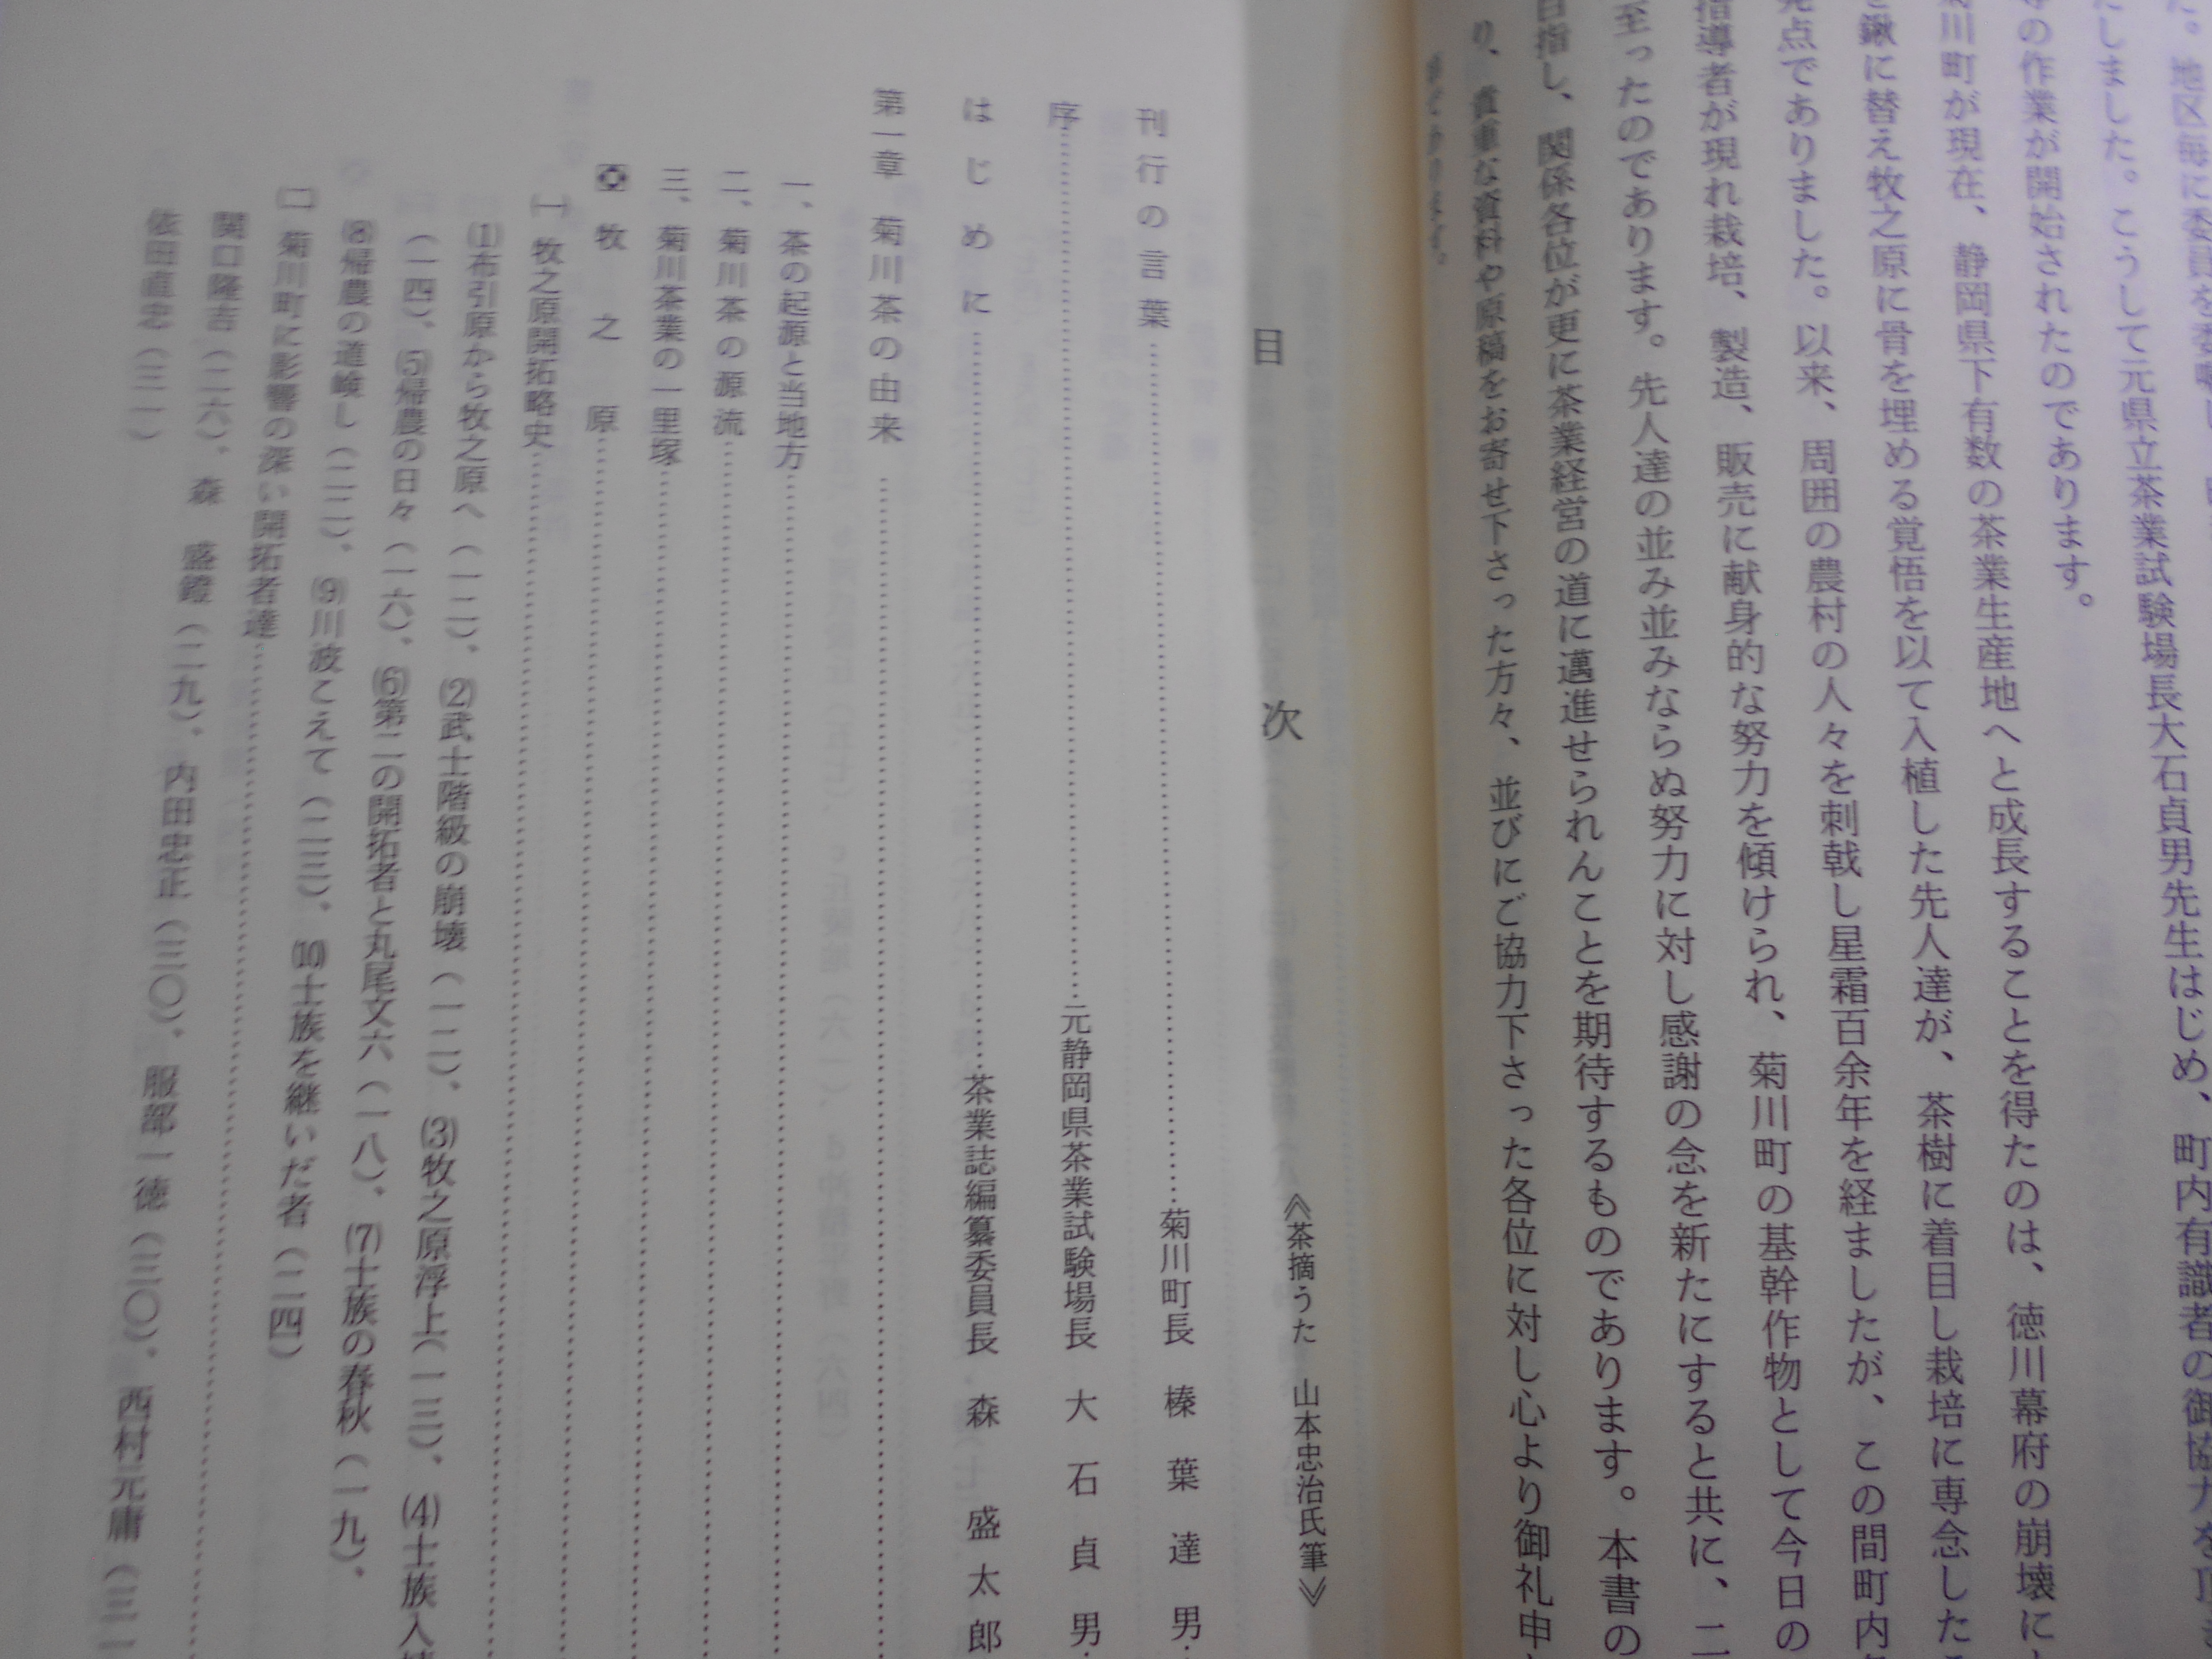 た。地区毎に委員を委嘱い
たしました。こうして元県立茶業試験場長大石貞男先生はじめ、町内有識者の御協力を頂き
等の作業が開始されたのであります。
菊川町が現在、静岡県下有数の茶業生産地へと成長することを得たのは、徳川幕府の崩壊に
を鍬に替え牧之原に骨を埋める覚悟を以て入植した先人達が、茶樹に着目し栽培に専念した
発点でありました。以来、周囲の農村の人々を刺戟し星霜百余年を経ましたが、この間町内
指導者が現れ栽培、製造、販売に献身的な努力を傾けられ、菊川町の基幹作物として今日の
至ったのであります。先人達の並み並みならぬ努力に対し感謝の念を新たにすると共に、二
目指し、関係各位が更に茶業経営の道に邁進せられんことを期待するものであります。本書の
り、貴重な資料や原稿をお寄せ下さった方々、並びにご協力下さった各位に対し心より御礼申
目　次　《茶摘うた　山本忠治氏筆》
刊行の言葉……菊川町長　榛葉達男
序……元静岡県茶業試験場長　大石貞男
はじめに……茶業誌編纂委員長　森　盛太郎
第一章　菊川茶の由来……
一、茶の起源と当地方……
二、菊川茶の源流……
三、菊川茶業の一里塚……
牧之原……
㈠　牧之原開拓略史……
⑴布引原から牧之原へ（一二）、⑵武士階級の崩壊（一二）、⑶牧之原浮上（一三）、⑷士族入植
（一四）、⑸帰農の日々（一六）、⑹第二の開拓者と丸尾文六（一八）、⑺士族の春秋（一九）、
⑻帰農の道峻し（二二）、⑼川波こえて（二三）、⑽士族を継いだ者（二四）
㈡　菊川町に影響の深い開拓者達……
関口隆吉（二六）、森　盛鐙（二九）、内田忠正（三〇）、服部一徳（三〇）、西村元庸（三一
依田直忠（三一）